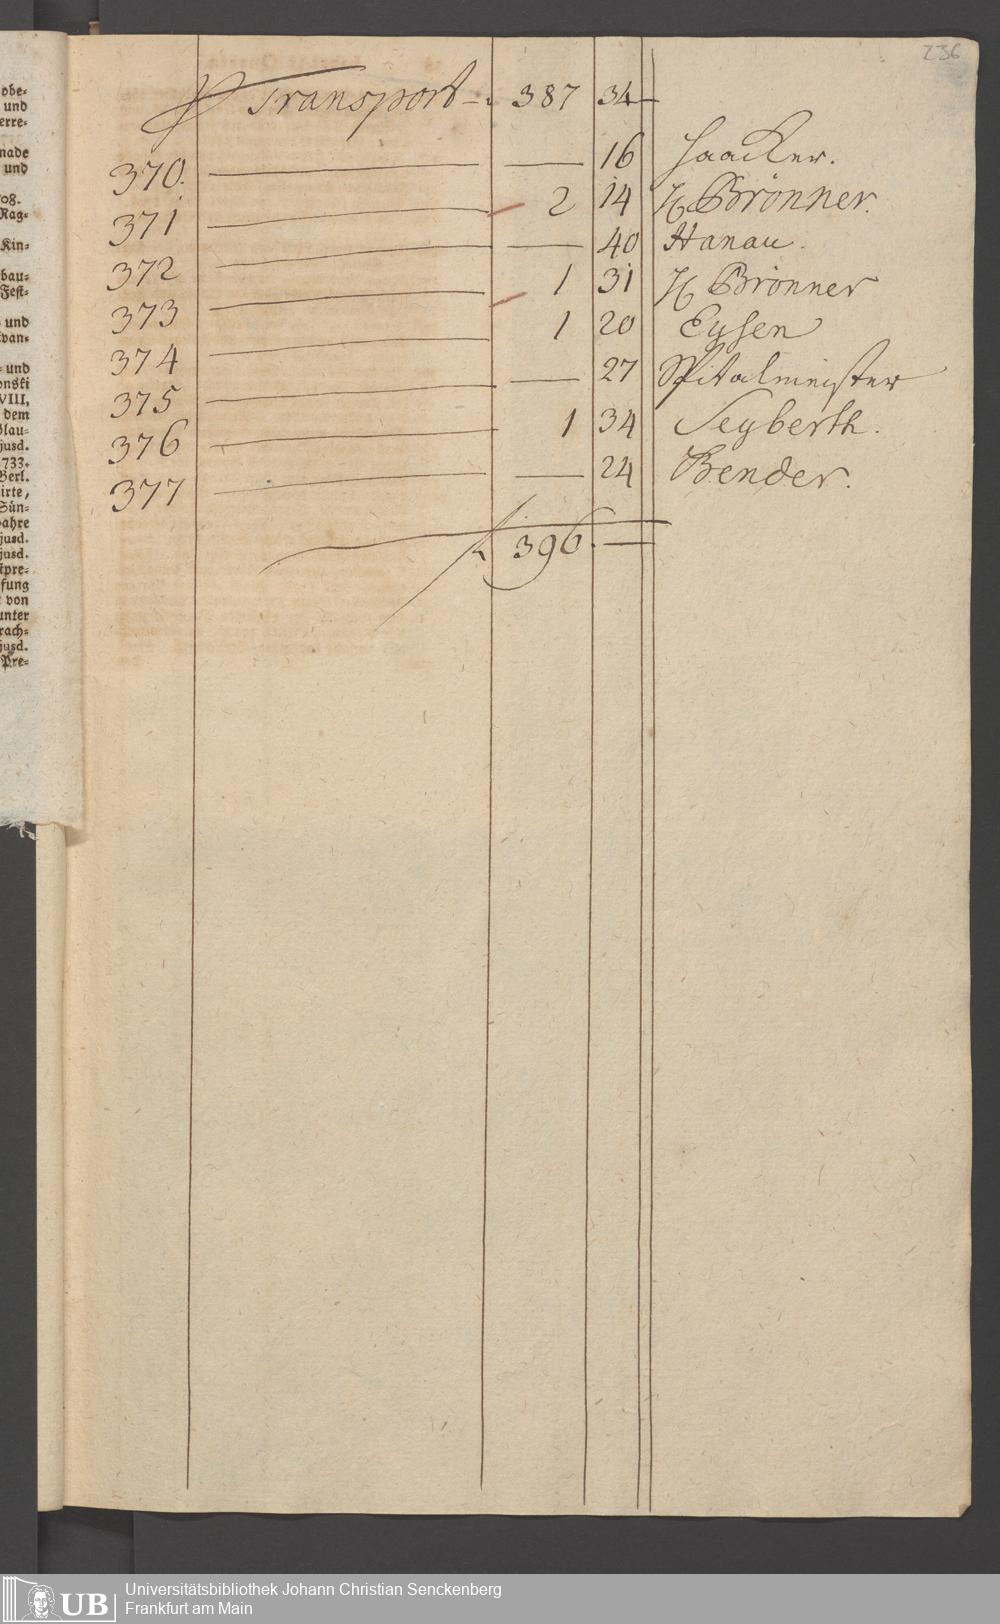 obe-
und
erre-
nade
und
708.
Rag-
Kin-
bau-
Fest-
und
und
onski
VIII,
dem
jusd.
1733.
Berl.
irte,
Sün-
jusd.
jusd.
von
unter
rach-
jusd.
Pre-
236
Transport 387 34
370. — — 16 Haacker.
371 — 2 14 H Brönner.
372 — — 40 Hanau.
373 — 1 31 H Brönner
374 — 1 20 Eysen
375 — — 27 Spitalmeister
376 — 1 34 Seyberth.
377 — — 24 Bender.
396. —
UB
Universitätsbibliothek Johann Christian Senckenberg
Frankfurt am Main